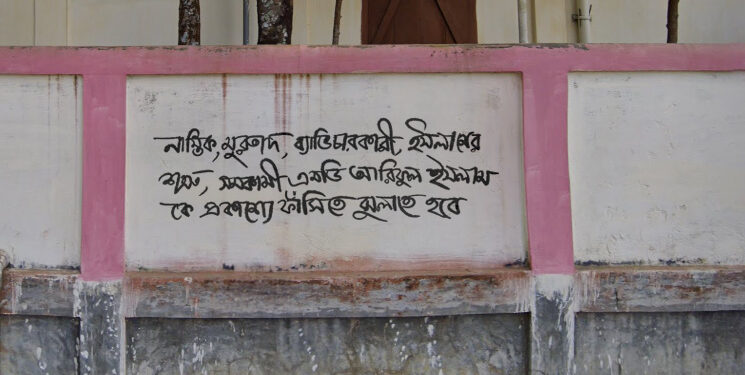 নাস্তিক, মুরতাদ, ব্যাভিচারকারী, ইসলামের
শত্রু, সমকামী এমডি আরিফুল ইসলাম
কে প্রকাশ্যে ফাঁসিতে ঝুলাতে হবে